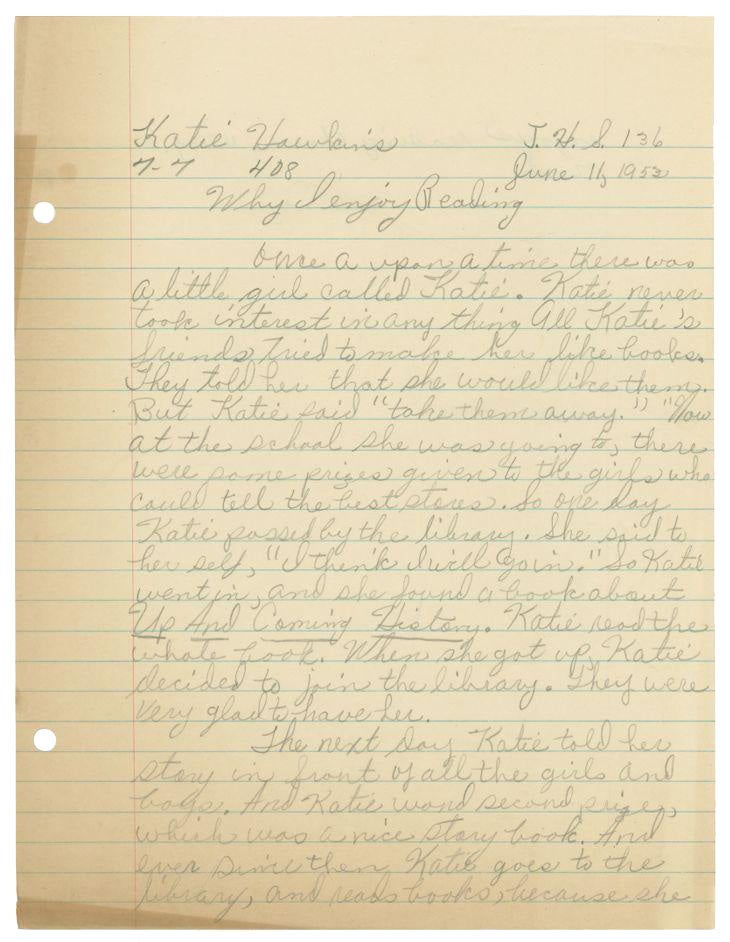 Katie Hawkins J. H. S. 136
7-7 408 June 11, 1952
Why I enjoy Reading
Once a upon a time there was
a little girl called Katie. Katie never
took interest in any thing All Katie's
friends, tried to make her like books.
They told her that she would like them.
But Katie said "take them away." "Now
at the school she was going to, there
were some prizes given to the girls who
could tell the best stores. So one day
Katie passed by the library. She said to
her self, "I think I will go in." So Katie
went in, and she found a book about
Up And Coming History. Katie read the
whole book. When she got up, Katie
decided to join the library. They were
very glad to have her.
The next day Katie told her
story in front of all the girls and
boys. And Katie wond second prize,
which was a nice story book. And
ever since then, Katie goes to the
library, and reads books, because she